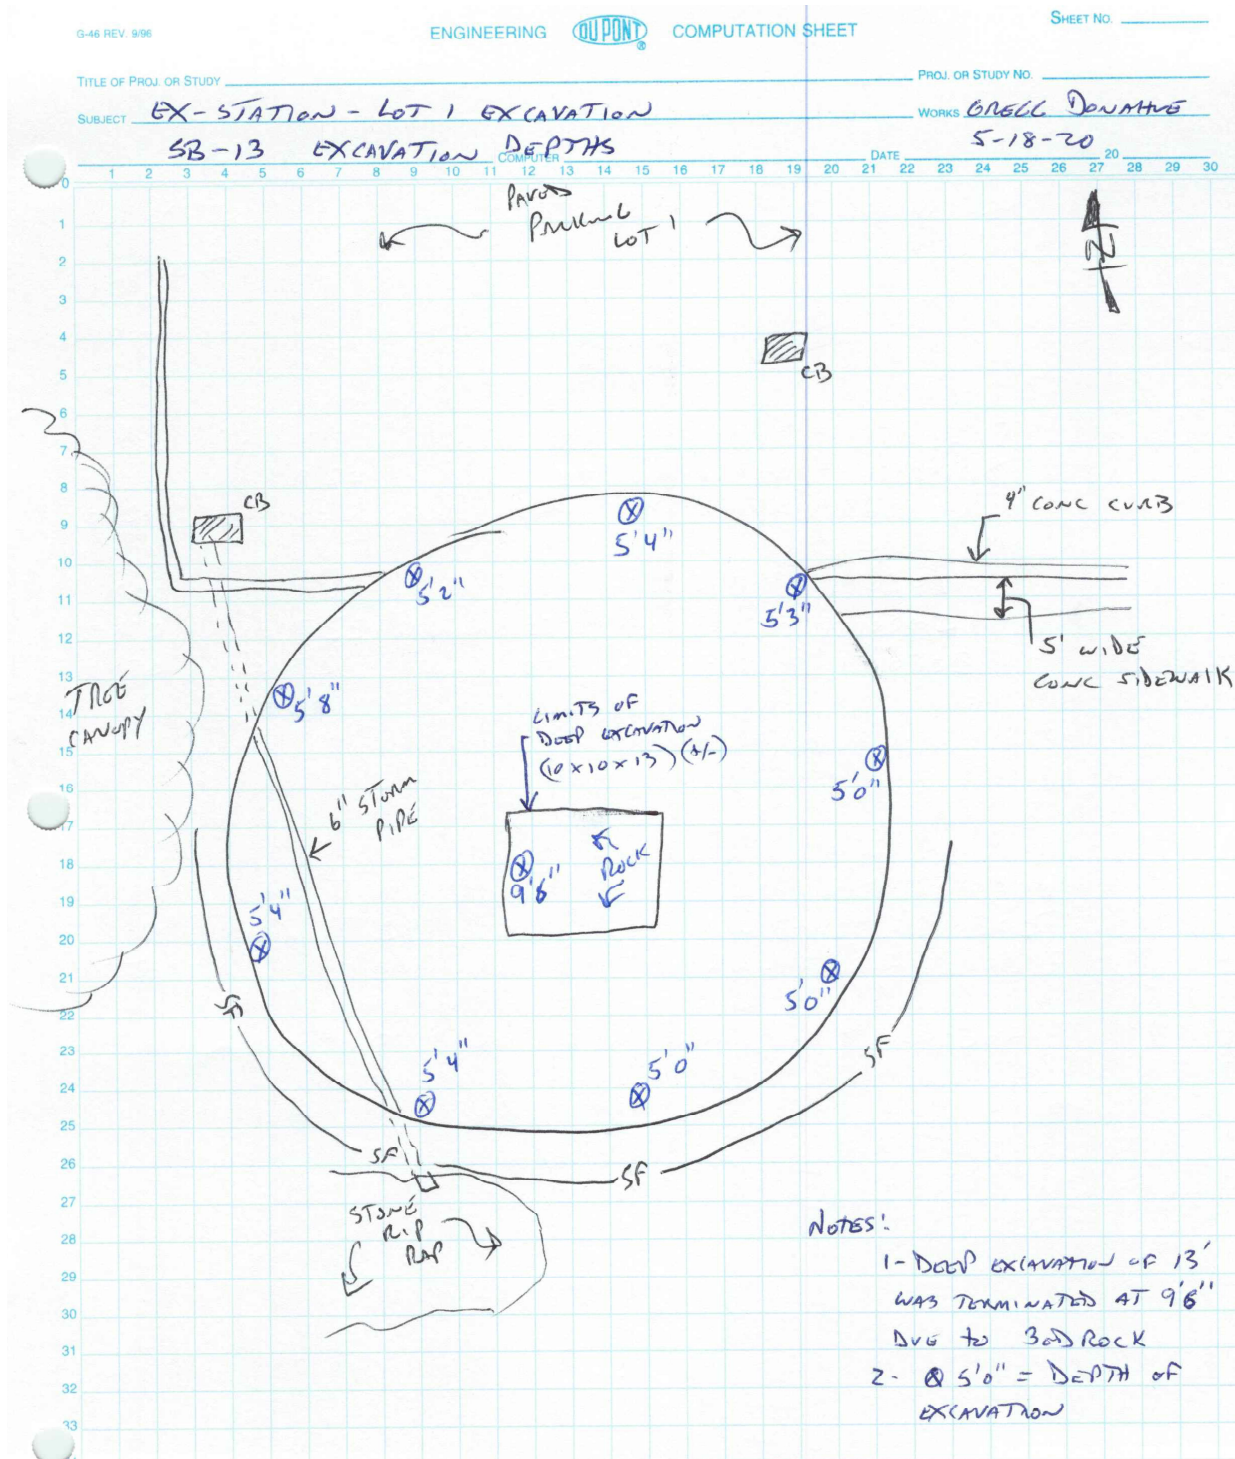 G-46 REV. 9/96
ENGINEERING DU PONT ® COMPUTATION SHEET
SHEET NO.
TITLE OF PROJ. OR STUDY
PROJ. OR STUDY NO.
SUBJECT EX-STATION - LOT 1 EXCAVATION
WORKS GREGG DONAHUE
SB-13 EXCAVATION DEPTHS
5-18-20
COMPUTER
DATE
20
0 1 2 3 4 5 6 7 8 9 10 11 12 13 14 15 16 17 18 19 20 21 22 23 24 25 26 27 28 30
PAVED
PARKING
LOT 1
N
1
2
3
4
5
6
7
8
9
10
11
12
13
14
15
16
17
18
19
20
21
22
23
24
25
26
27
28
29
30
31
32
33
CB
CB
4" CONC CURB
5'4"
5'2"
5'3"
5' WIDE
CONC SIDEWALK
TREE
CANOPY
5'8"
LIMITS OF
DEEP EXCAVATION
(10 x 10 x 13') (+/-)
5'0"
6" STORM
PIPE
ROCK
9'6"
5'4"
5'0"
SF
5'4"
5'0"
SF
SF
SF
STONE
RIP
RAP
NOTES:
1- DEEP EXCAVATION OF 13'
WAS TERMINATED AT 9'6"
DUE TO BEDROCK
2- ⊗ 5'0" = DEPTH OF
EXCAVATION